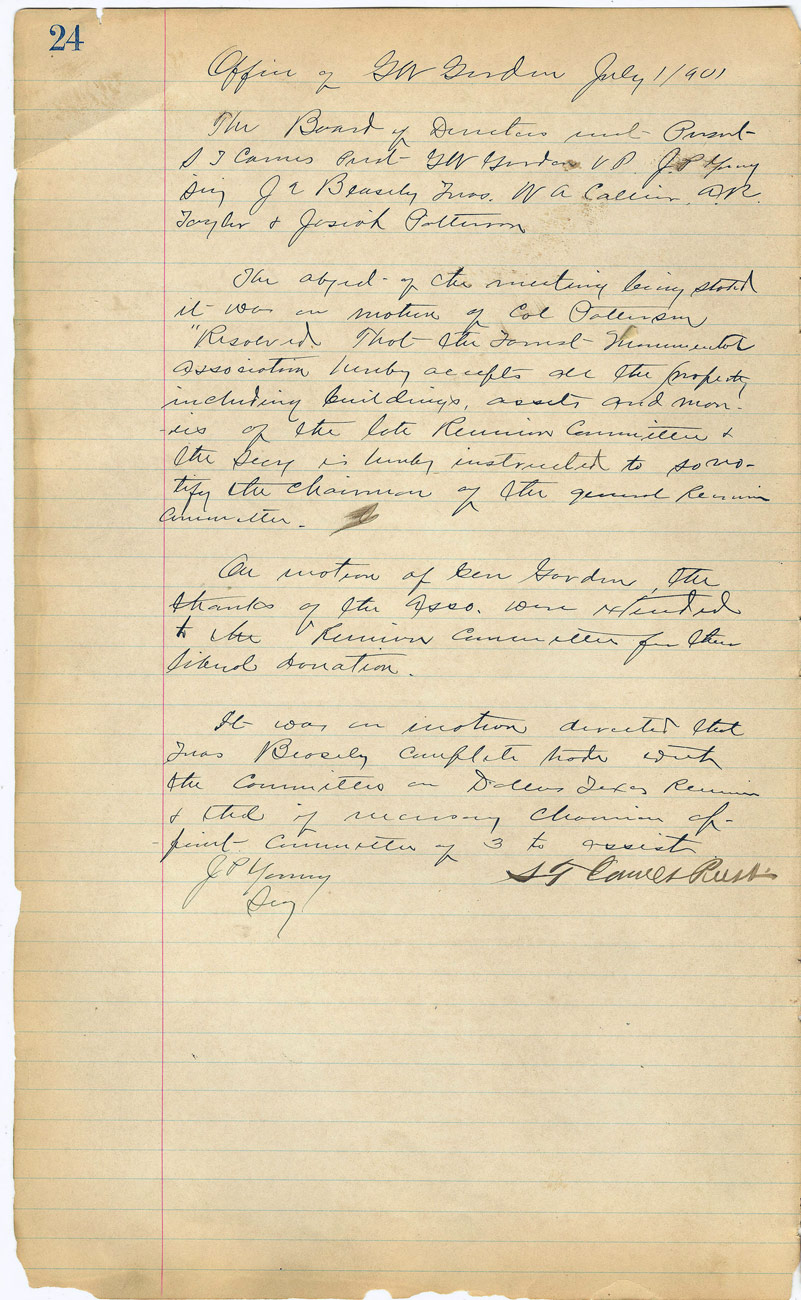 24
Office of GW Gordon July 1/901
The Board of Directors met Present
S T Carnes Prest GW Gordon V P. J. P. Young
Secy J E Beasely Treas. W A Collier. A. R.
Taylor & Josiah Patterson
The object of the meeting being stated
it was on motion of Col Patterson
"Resolved That the Forrest Monumental
Association hereby accepts all the property
including buildings, assets and mon-
-ies of the late Reunion Committee &
the Secy is hereby instructed to so no-
tify the chairman of the general Reunion
Committee.
On motion of Gen Gordon, the
thanks of the Asso. were extended
to the Reunion Committee for their
liberal donation.
It was on motion directed that
Treas Beasely complete trade with
the Committee on Dallas Texas Reunion
& that if necessary Chairman ap-
point Committee of 3 to assist
J P Young
Secy
S T Carnes Prest